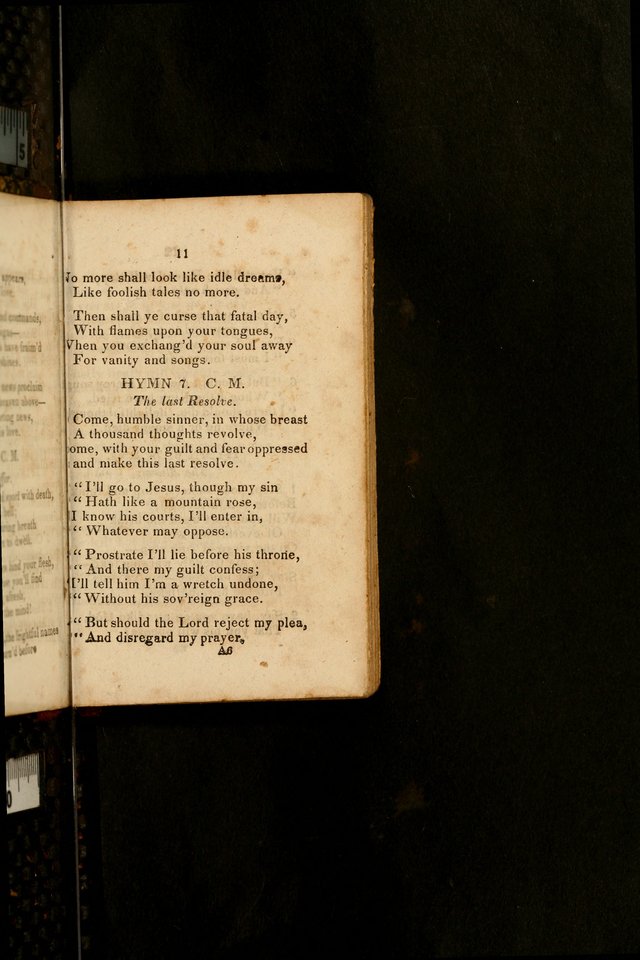 5
0
appears,
commands,
have fram'd
news proclaim
above—
news,
love.
C. M.
with death,
breath
dwell.
your flesh,
find
afresh,
mind?
the frightful names
before
11
No more shall look like idle dreams,
Like foolish tales no more.
Then shall ye curse that fatal day,
With flames upon your tongues,
When you exchang'd your soul away
For vanity and songs.
HYMN 7. C. M.
The last Resolve.
Come, humble sinner, in whose breast
A thousand thoughts revolve,
ome, with your guilt and fear oppressed
and make this last resolve.
“ I'll go to Jesus, though my sin
“ Hath like a mountain rose,
I know his courts, I'll enter in,
“ Whatever may oppose.
“ Prostrate I'll lie before his throne,
“ And there my guilt confess;
I'll tell him I'm a wretch undone,
“ Without his sov'reign grace.
“ But should the Lord reject my plea,
“ And disregard my prayer,
A6